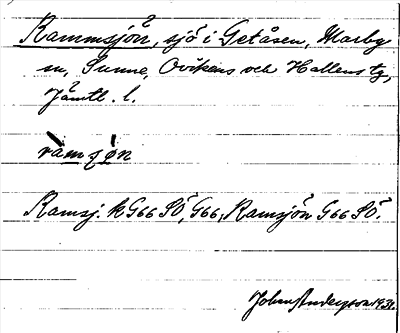 Rammsjön, sjö i Getåsen, Marby
sn, Sunne, Ovikens och Hallens tg,
Jämtl. l.
ràmʃ̀ön
Ramsj. k G66 SÖ, G66, Ramsjön G66 SÖ.
John Andersson 1931.